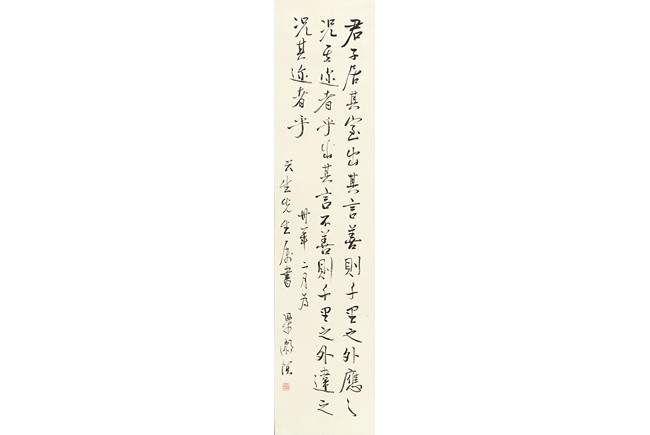 君子居其室出其言善則千里之外應之
況其迩者乎出其言不善則千里之外違之
況其迩者乎
卅年二月为
先生属書
梁漱溟